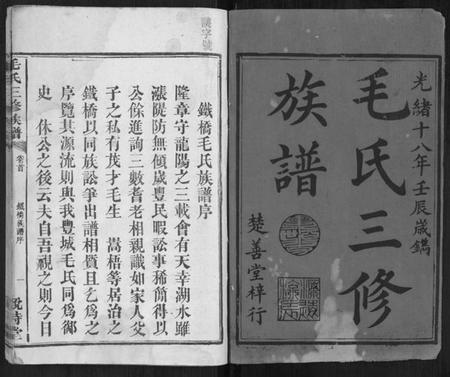 光緒十八年壬辰歲鐫
毛氏三修
族譜
楚善堂梓行
鐵橋毛氏族譜序
隆章守龍陽之三載會有天幸湖水雖
漲隄防無傾歲豐民暇訟事稀簡得以
公餘進詢三數耆老相親識如家人父
子之私有茂才毛生 嵩梧等居治之
鐵橋以同族訟爭出譜相質且乞為之
序覽其源流則與我豐城毛氏同為鄒
史 休公之後云夫自吾視之則今日
毛氏三修族譜
卷首
鐵橋族譜序
一
說詩堂
字號